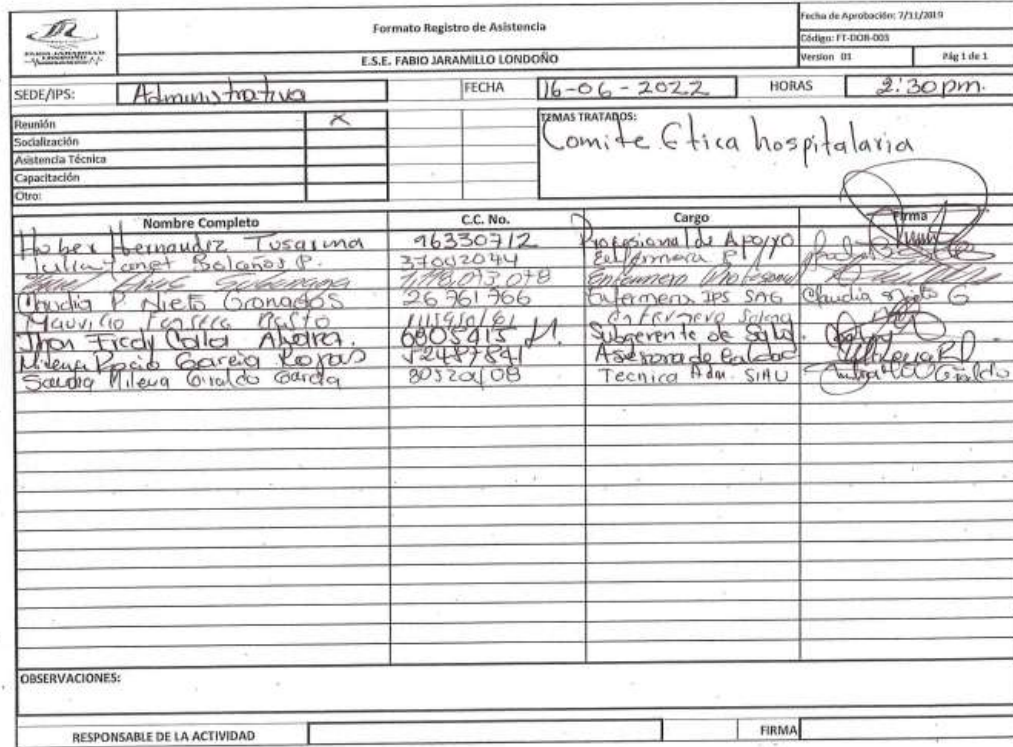 FABIO JARAMILLO LONDOÑO
Formato Registro de Asistencia
E.S.E. FABIO JARAMILLO LONDOÑO
Fecha de Aprobación: 7/11/2019
Código: FT-DOR-003
Version 01 Pág 1 de 1
SEDE/IPS: Administrativa FECHA 16-06-2022 HORAS 2:30 pm.
Reunión X
Socialización
Asistencia Técnica
Capacitación
Otro:
TEMAS TRATADOS:
Comite Etica hospitalaria
Nombre Completo C.C. No. Cargo Firma
Huber Hernandez Tusarma 96330712 Profesional de Apoyo
Bolaños P. 37002044 Enfermera
Enfermero Profesional
Claudia P. Nieto Granados 26761766 Enfermera IPS SAG Claudia Nieto G
Mauricio Enfermero Solano
Jhon Fredy Subgerente de Salud.
Milena Rocio Garcia Rojas 52487841 Asesora de Calidad Milena
Sandra Milena Giraldo Garcia Tecnica Adm. SIAU Giraldo
OBSERVACIONES:
RESPONSABLE DE LA ACTIVIDAD FIRMA